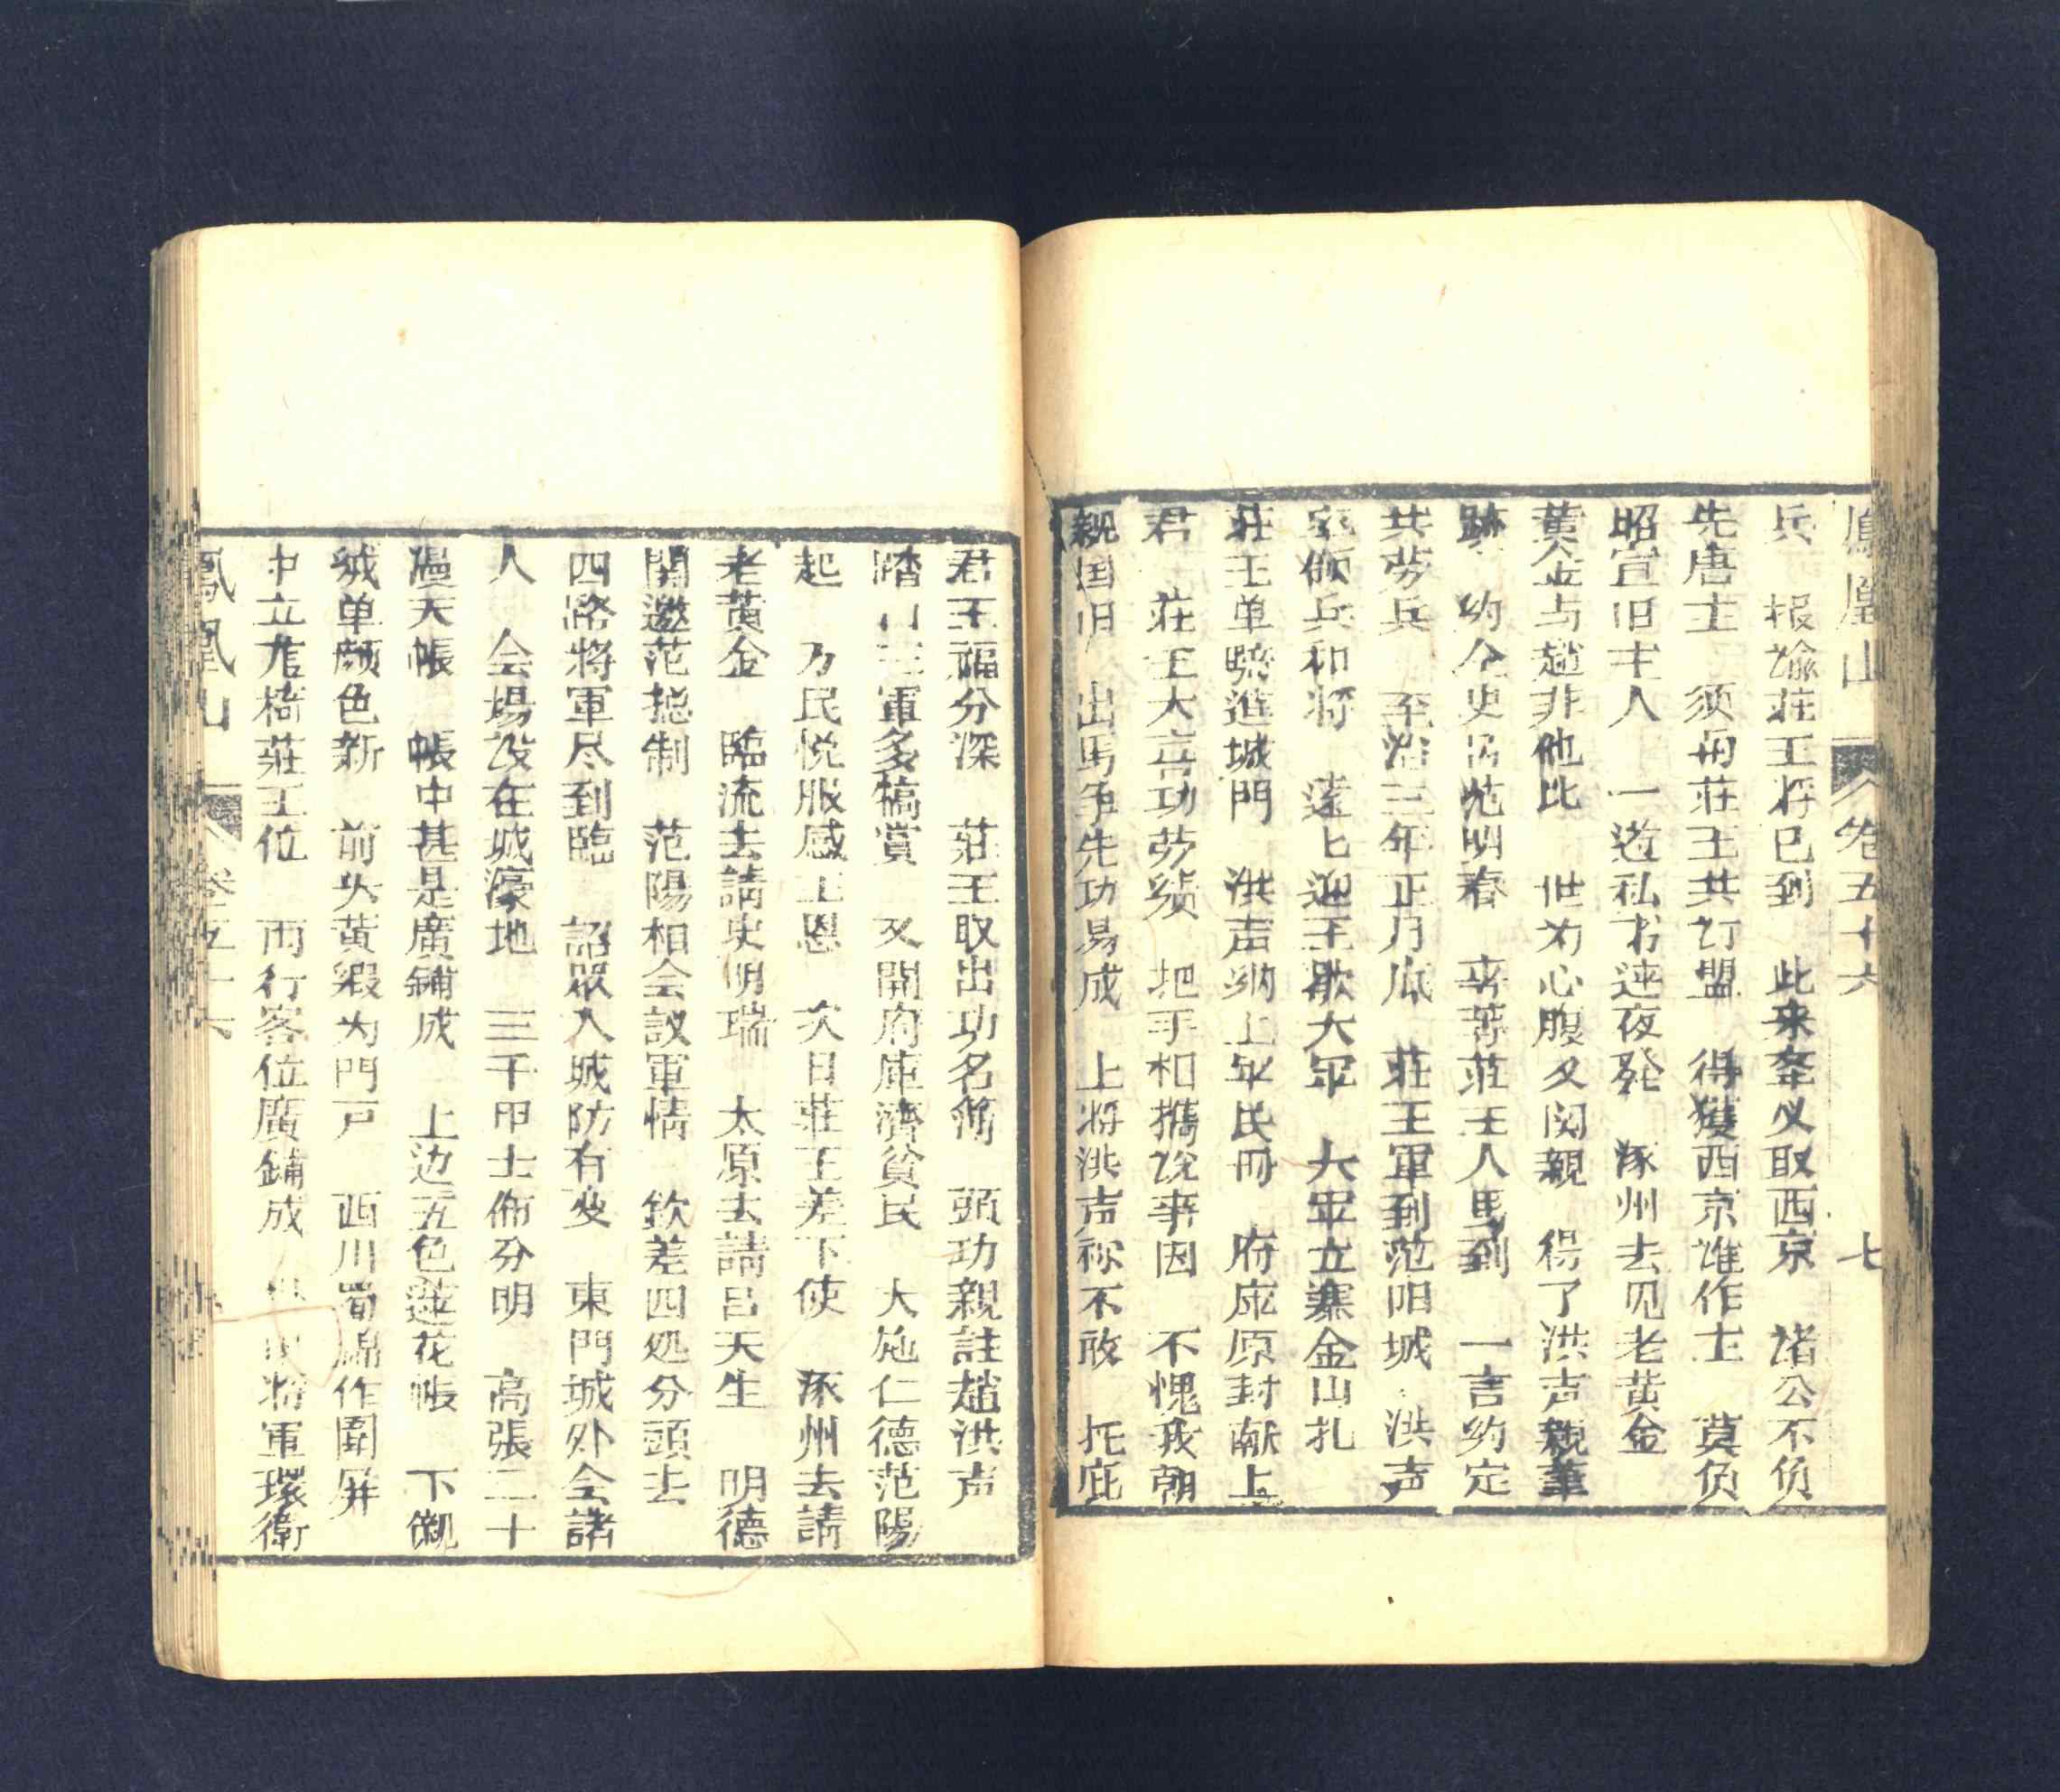 鳳凰山 卷五十六 七
兵 报谕莊王将已到 此来奎义取西京 诸公不负
先唐主 须与莊王共訂盟 得獲西京谁作主 莫负
昭宣旧主人 一道私书連夜發 涿州去见老黄金
黄金与趙非他比 世为心腹又関親 得了洪声親筆
跡 约仝史吕范明春 专等莊王人馬到 一言约定
共劳兵 至治三年正月底 莊王軍到范阳城 洪声
率领兵和将 遠匕迎王歇大軍 大軍立寨金山扎
莊王单騎進城門 洪声纳上軍民冊 府庫原封献上
君 莊王大喜功劳绩 把手相攜说事因 不愧我朝
親国旧 出馬争先功易成 上将洪声称不敢 托庇
君王福分深 莊王取出功名簿 頭功親註趙洪声
三軍多犒賞 又開府庫濟貧民 大施仁德范陽
起 万民悦服感王恩 次日莊王差下使 涿州去請
老黄金 臨流去請史明瑞 太原去請吕天生 明德
関邀范摠制 范陽相会议軍情 欽差四处分頭去
四路将軍尽到臨 詔眾入城防有变 東門城外会諸
人 会場设在城濠地 三千甲士佈分明 高張二十
漫天帳 帳中甚是廣鋪成 上边五色蓮花帳 下襯
絨单颜色新 前头黄緞为門戸 西川蜀錦作圍屏
中立龙椅莊王位 両行客位廣鋪成 将軍環衛
鳳凰山 卷五十六